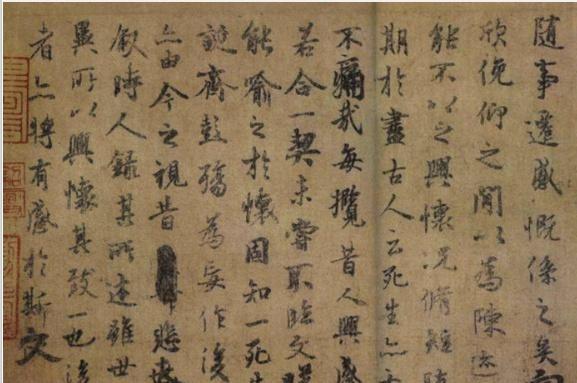 隨事遷感慨係之矣向
欣俛仰之閒以為陳迹
能不以之興懷況脩短隨
期於盡古人云死生亦
不痛哉每攬昔人興感
若合一契未嘗不臨文嗟
能喻之於懷固知一死生
誕齊彭殤為妄作後
亦由今之視昔悲夫
叙時人錄其所述雖世
異所以興懷其致一也後
者亦將有感於斯文